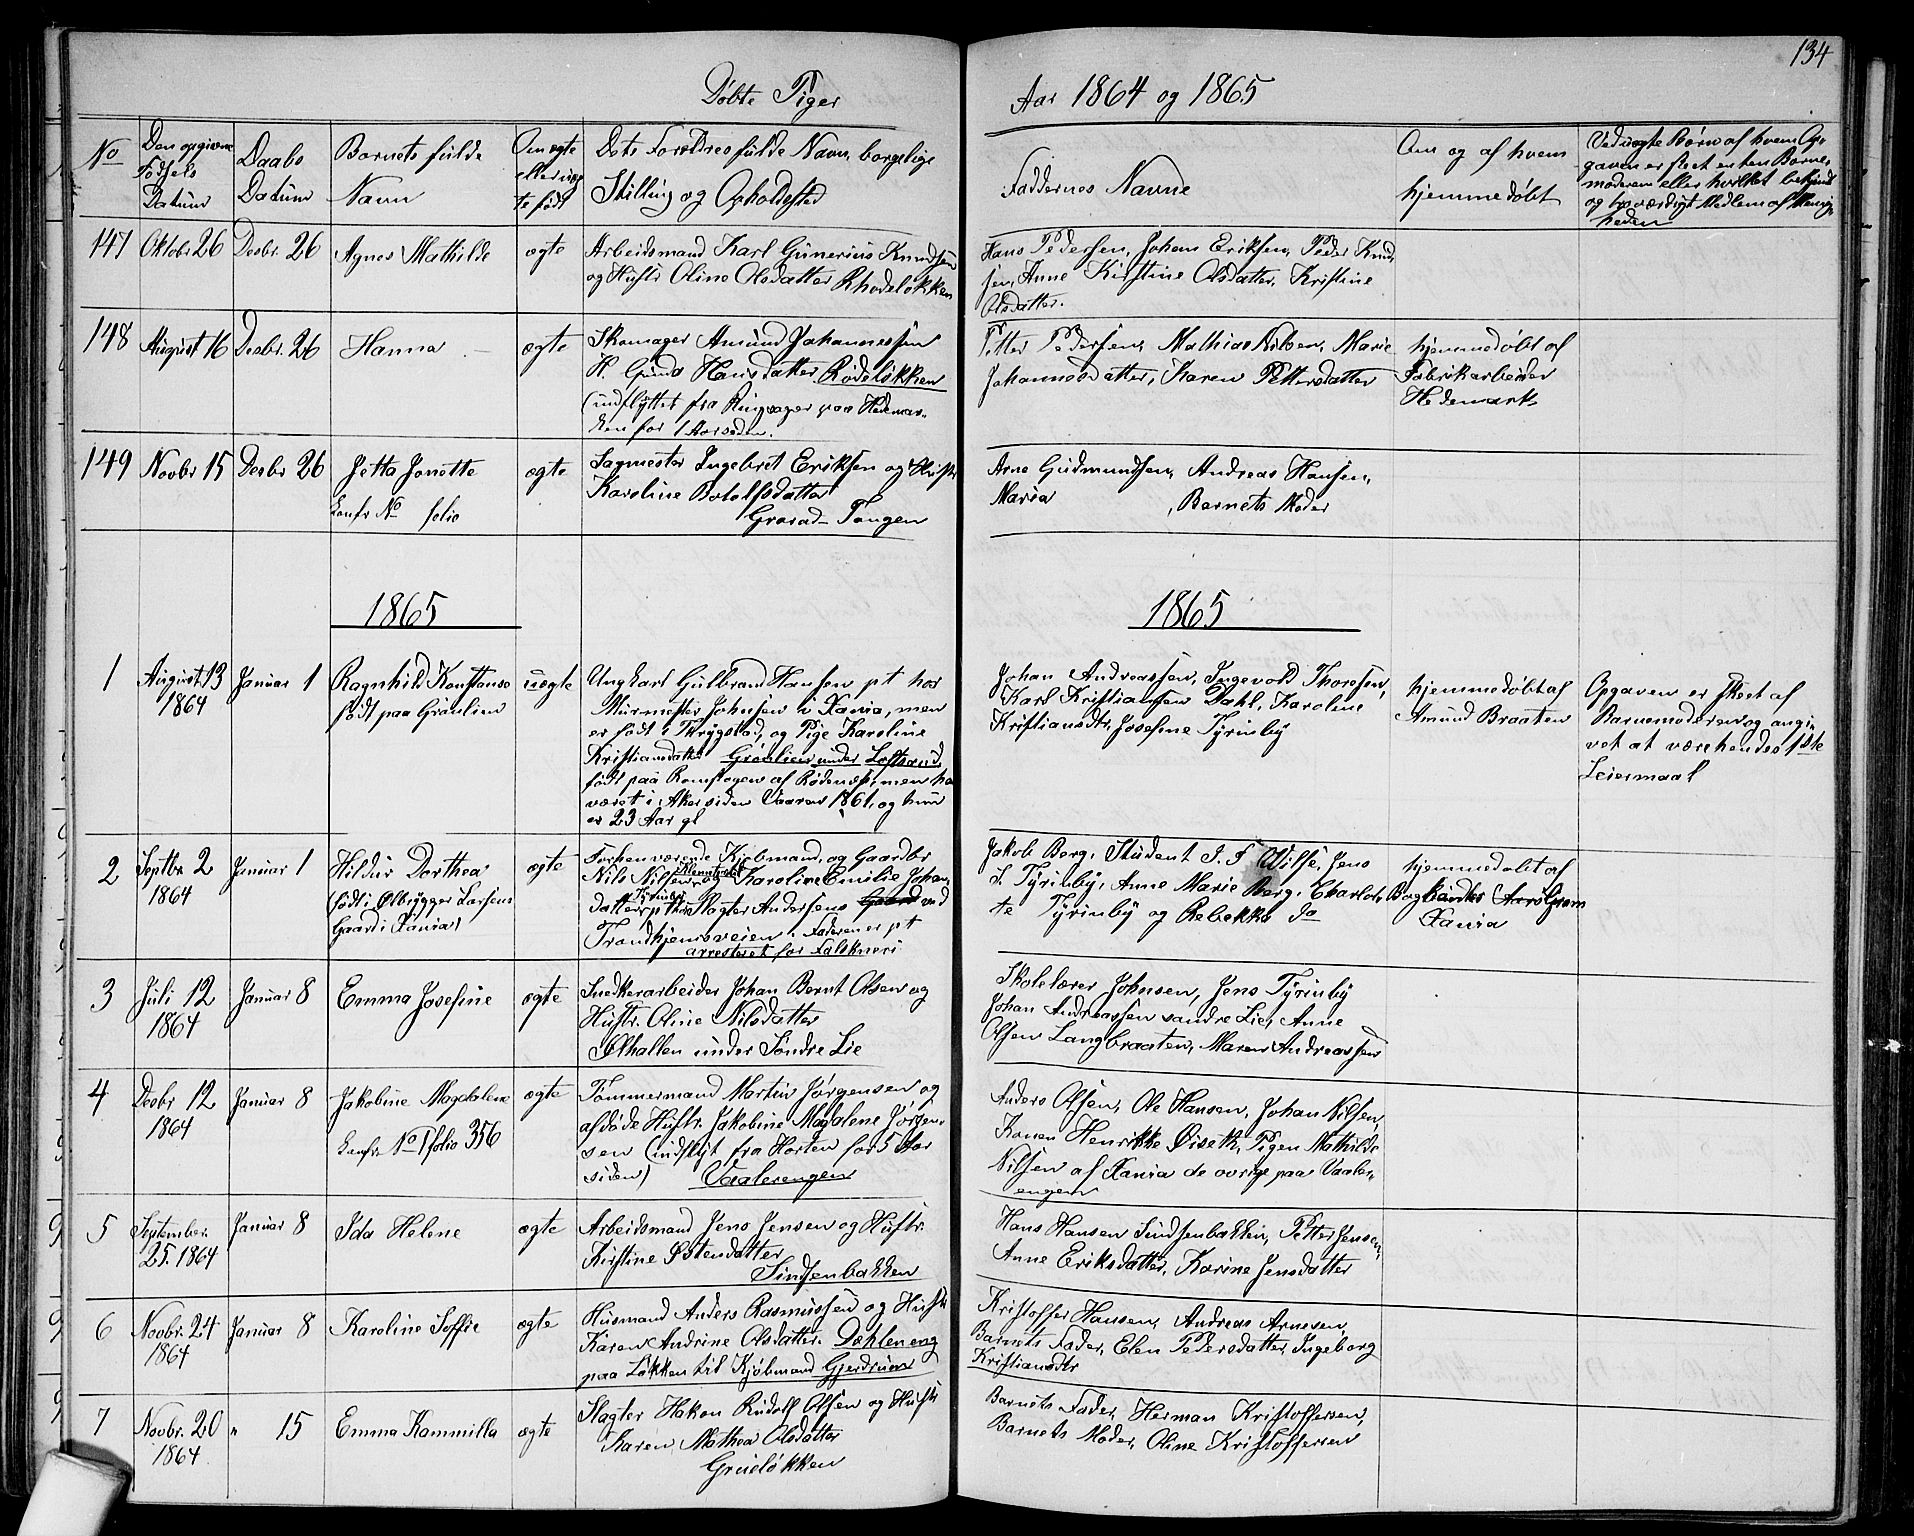 134
Døbte Piger
Aar 1864 og 1865
No
Den opgivne Fødsels Datum
Daabs Datum
Barnets fulde Navn
Om ægte eller uægte født
Dets Forældres fulde Navn, borgelige Stilling og Opholdssted
Faddernes Navne
Om og af hvem hjemmedøbt
Ved uægte Børn af hvem Opgaven er skeet enten Barnemoderen eller hvilket bekjendt og troværdigt Medlem af Menigheden
147 Oktobr 26 Desbr. 26 Agnes Mathilde ægte
Arbeidsmand Karl Gunerius Knudsen
og Hustr. Oline Olsdatter Rhodeløkken
Hans Pedersen, Johan Eriksen, Peder Knud
sen, Anne Kirstine Olsdatter, Kristine
Olsdatter.
148 August 16 Desbr. 26 Hanna ægte
Skomager Amund Johannessen
H. Hansdatter Rødeløkken
(indflyttet fra Ringsager paa Hedemar-
ken for 1 Aar siden.
Petter Pedersen, Mathias Nilsen, Marie
Johannesdatter, Karen Pettersdatter
hjemmedøbt af
Fabrikarbeider
Hedemark
149 Novbr 15 Desbr 26 Jetta Jonette ægte
Konfr No folio
Sagmester Ingebret Eriksen og Hustr
Karoline Botolfsdatter
Tangen
Arne Gudmundsen, Andreas Hansen,
Maria , Barnets Moder
1865
1865
1 August 13 Januar 1 Ragnhild Konstanse uægte
1864 født paa Grønlien
Ungkarl Gulbrand Hansen pt hos
Murmester Johnsen i Xania, men
er født i Thrygstad, og Pige Karoline
Kristiansdatter Grønlien under Loftsrud
født paa Romskogen af Rødenæs, men har
været i Aker siden Vaaren 1861, og hun
er 23 Aar gl
Johan Andreassen, Ingevold Thoresen,
Karl Kristiansen Dahl, Karoline
Kristiansdtr, Josefine Tyrinby
hjemmedøbt af
Amund Braaten
Opgaven er skeet af
Barnemoderen og angi-
vet at være hendes 1ste
Leiermaal
2 Septbr 2 Januar 1 Hildur Dorthea ægte
1864 (født i Ølbrygger Larsens
Gaard i Xania)
Forhenværende Kjøbmand, og Gaardbr
Nils Nilsen og Karoline Emilie Johan,
datter pt hos Slagter Andersens Gaard ved
Trondhjemsveien. Faderen er pt
arresteret for Falskneri
Jakob Berg, Student J. F Wilse, Jens
J. Tyrinby, Anne Marie Berg, Charlot-
te Tyrinby og Rebekka do
hjemmedøbt af
Xania
3 Juli 12 Januar 8 Emma Josefine ægte
1864
Snedkerarbeider Johan Bernt Olsen og
Hustr. Oline Nilsdatter
Ølhallen under Søndre Lie
Skolelærer Johnsen, Jens Tyrinby
Johan Andreassen søndre Lie, Anne
Olsen Langbraaten, Maren Andreassen
4 Desbr 12 Januar 8 Jakobine Magdalene ægte
1864 Konfr No 1 folio 356
Tømmermand Martin Jørgensen og
afdøde Hustr. Jakobine Magdalene Jørgen-
sen (indflyt fra Horten for 5 Aar
siden) Vaalerengen
Anders Olsen, Ole Hansen, Johan Nilsen,
Konen Henrikke Øiseth, Pigen Mathilde
Nilsen af Xania de øvrige paa Vaaler-
engen
5 September Januar 8 Ida Helene ægte
25. 1864
Arbeidsmand Jens Jensen og Hustr.
Kirstine Østensdatter
Sinsenbakken
Hans Hansen Sinsenbakken, Petter Jensen,
Anne Eriksdatter, Karine Jensdatter
6 Novbr. 24 Januar 8 Karoline Soffie ægte
1864
Husmand Anders Rasmussen og Hustr
Karen Andrine Olsdatter. Dæhleneng
paa Løkken til Kjøbmand Gjerdrum
Kristoffer Hansen, Andreas Arnesen,
Barnets Fader, Elen Pedersdatter, Ingeborg
Kristiansdtr
7 Novbr. 20 " 15 Emma Kammilla ægte
1864
Slagter Hakon Rudolf Olsen og Hustr
Karen Mathea Olsdatter
Grueløkken
Barnets Fader, Herman Kristoffersen,
Barnets Moder, Oline Kristoffersen